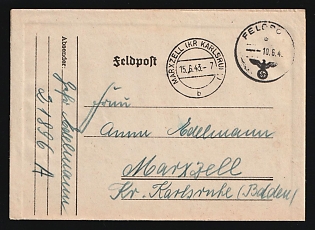 Feldpost
MARXZELL (KR KARLSRUHE)
15.6.43.-7
b
FELDPOST
a
10.6.4
Absender:
Edelmann
21886 A
Frau
Anna Edelmann
Marxzell
Kr. Karlsruhe (Baden)